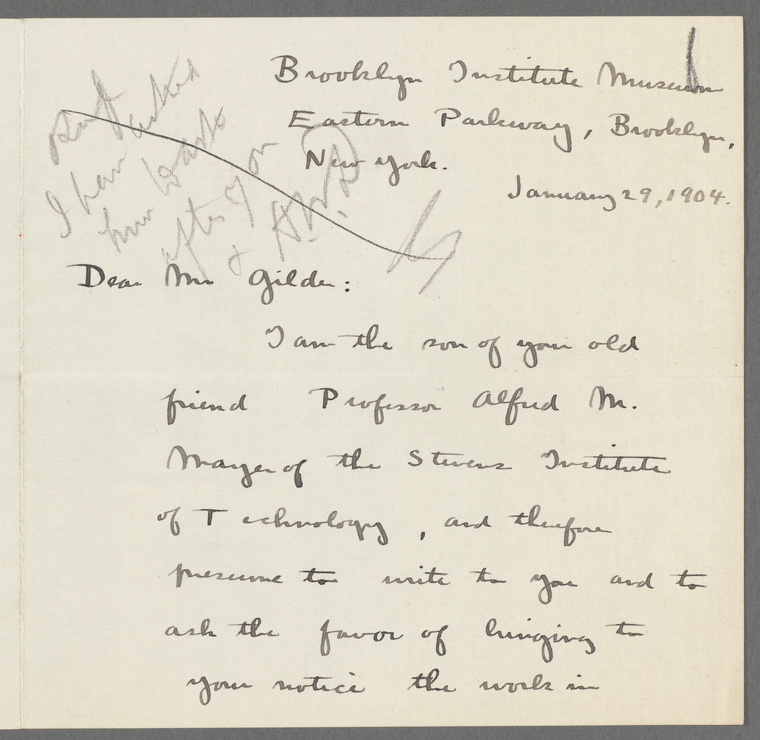 Brooklyn Institute Museum
Eastern Parkway, Brooklyn,
New York.
January 29, 1904.
I have asked
him back
after you
Dear Mr Gilder:
I am the son of your old
friend Professor Alfred M.
Mayer of the Stevens Institute
of Technology, and therefore
presume to write to you and to
ask the favor of bringing to
your notice the work in